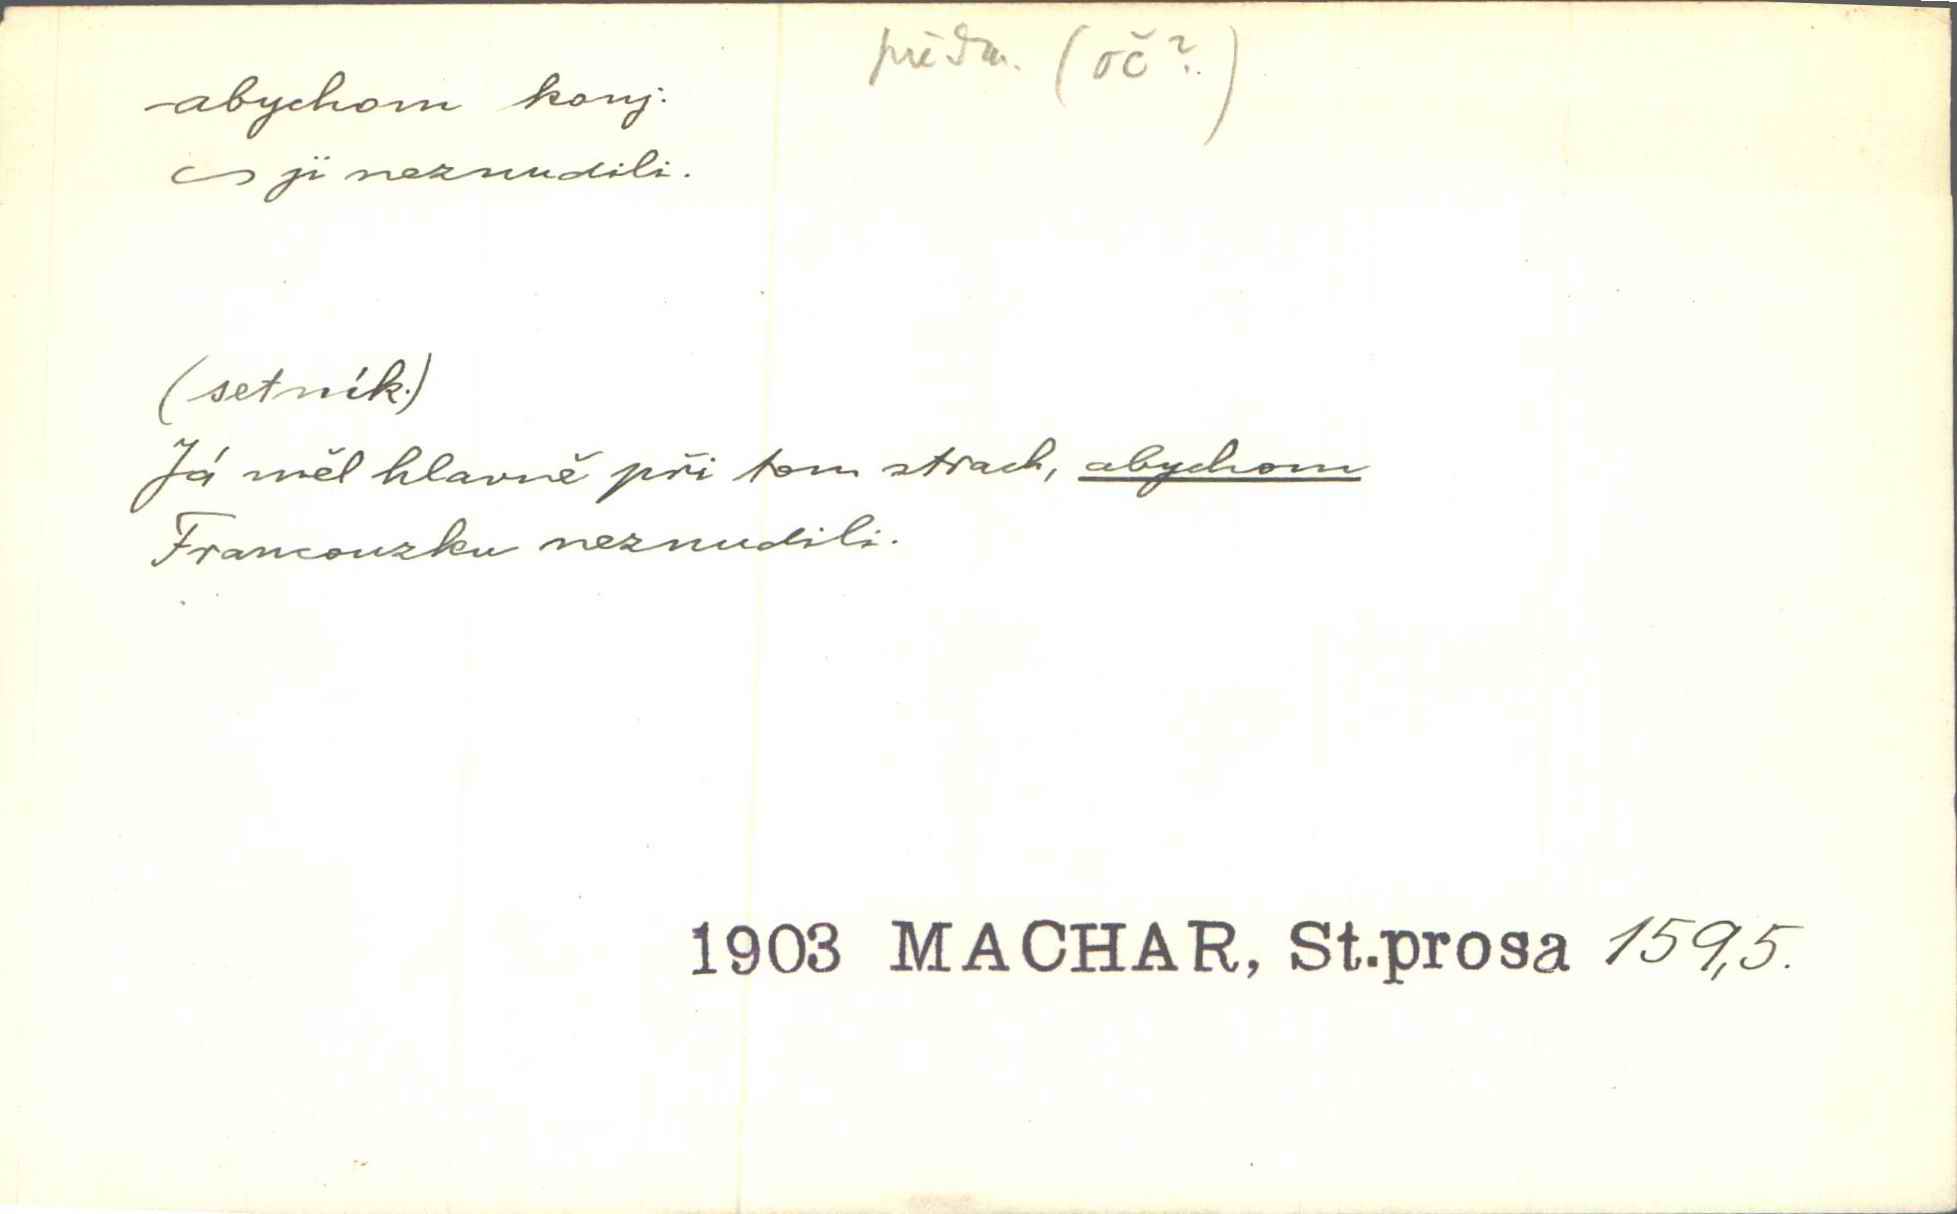 předm. (oč?)
abychom konj.
ji neznudili.
(setník.)
Já měl hlavně při tom strach, abychom
Francouzku neznudili.
1903 MACHAR, St.prosa 159,5.